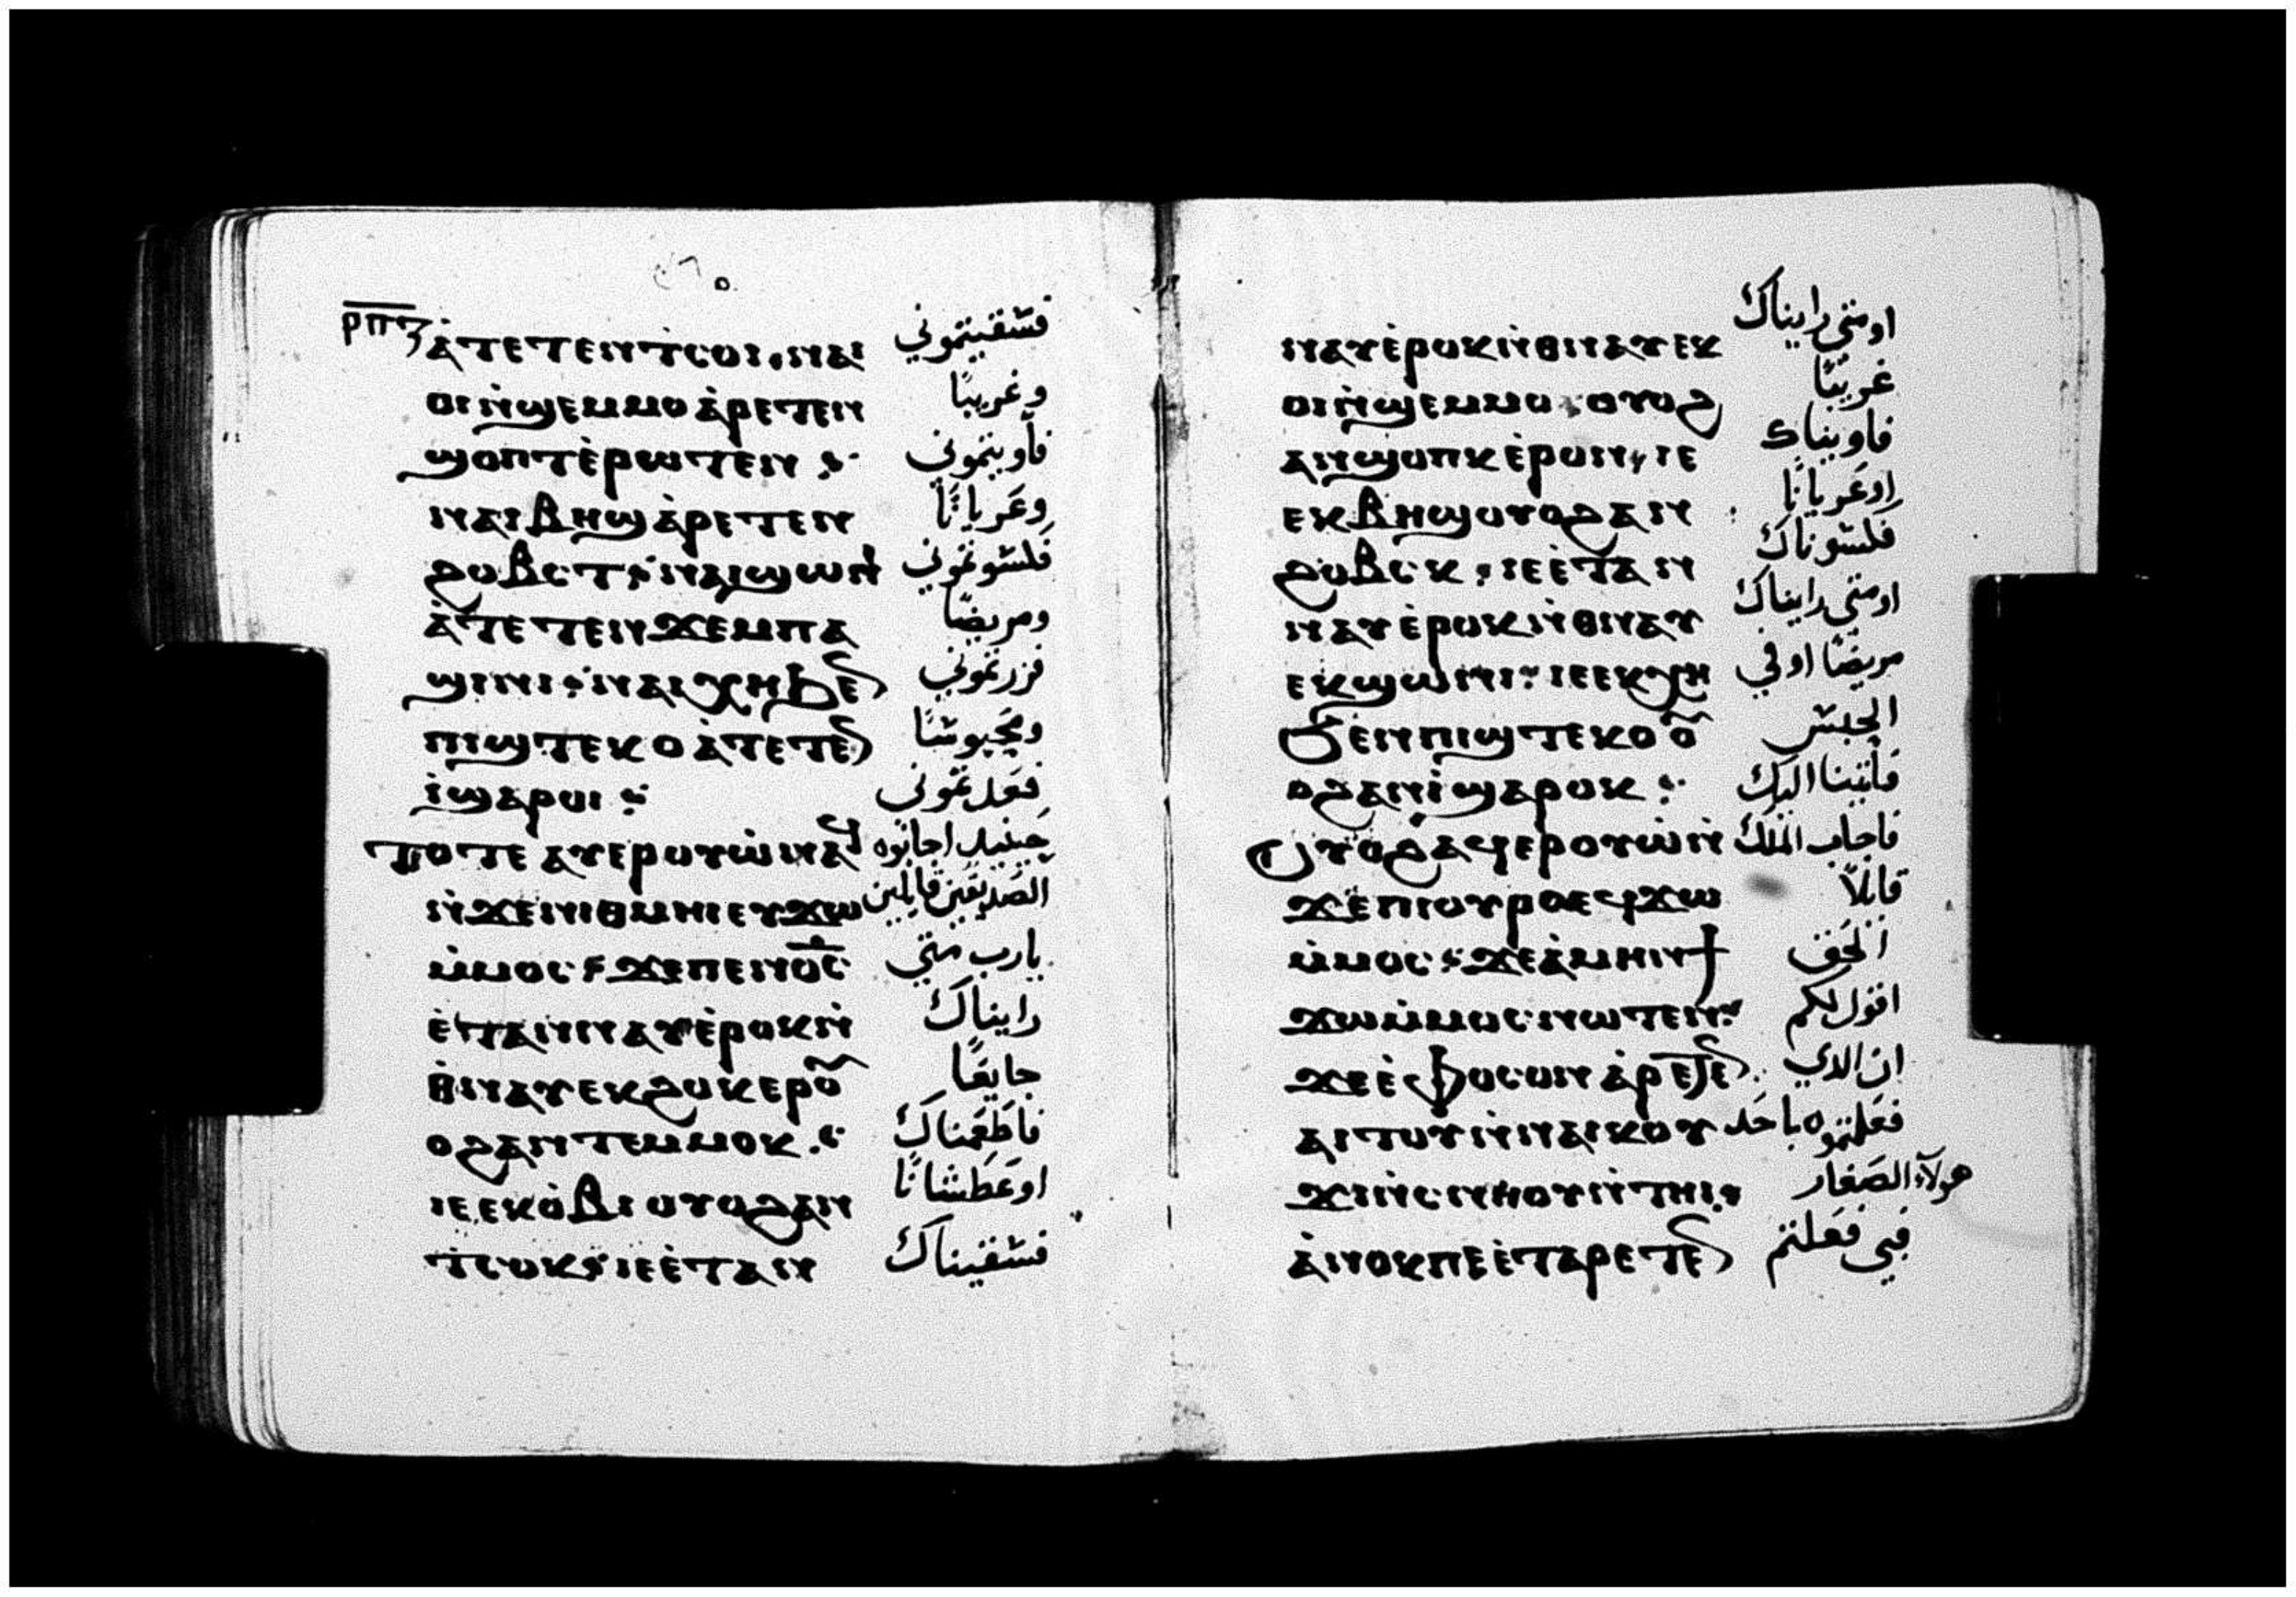 ⲣⲡⲍ
ⲁ̀ⲧⲉⲧⲉⲛⲧⲥⲟⲓ ⲛⲁⲓ فسقيتموني
ⲟⲓ ⲛ̀ϣⲉⲙⲙⲟ ⲁ̀ⲣⲉⲧⲉⲛ وغريبًا
ϣⲟⲡⲧ ⲉ̀ⲣⲱⲧⲉⲛ فآويتموني
ⲛⲁⲓⲃⲏϣ ⲁ̀ⲣⲉⲧⲉⲛ وعريانًا
ϩⲟⲃⲥⲧ ⲛⲁⲓϣⲱⲛⲓ فكسوتموني
ⲁ̀ⲧⲉⲧⲉⲛϫⲉⲙⲡⲁ ومريضًا
ϣⲓⲛⲓ ⲛⲁⲓⲭⲏ ϧⲉ̄ فزرتموني
ⲡⲓϣⲧⲉⲕⲟ ⲁ̀ⲧⲉⲧⲉ̄ ومحبوسًا
ⲓ̀ ϣⲁⲣⲟⲓ
ⲧⲟⲧⲉ ⲁⲩⲉⲣⲟⲩⲱ̀ ⲛⲁϥ حينيد اجابوه
ⲛ̀ϫⲉⲛⲓⲑⲙⲏⲓ ⲉⲩϫⲱ الصديقين قايلين
ⲙ̀ⲙⲟⲥ ϫⲉ ⲡⲉⲛⲟ̅ⲥ̅ يارب متي
ⲉ̀ⲧⲁⲛⲛⲁⲩ ⲉ̀ⲣⲟⲕ ⲛ̀ رايناك
ⲑⲛⲁⲩ ⲉⲕϩⲟⲕⲉⲣ ⲟ̄ جايعًا
ⲟϩ ⲁⲛⲧⲉⲙⲙⲟⲕ فاطعمناك
ⲓⲉ ⲉⲕⲟ̀ⲃⲓ ⲟⲩⲟϩ ⲁⲛ اوعطشانًا
ⲧⲥⲟⲕ ⲓⲉ ⲉ̀ⲧⲁⲛ فسقيناك
ⲛⲁⲩ ⲉ̀ⲣⲟⲕ ⲛ̀ⲑⲛⲁⲩ ⲉⲕ اومتي رايناك
ⲟⲓ ⲛ̀ϣⲉⲙⲙⲟ ⲟⲩⲟϩ غريبًا
ⲁⲛϣⲟⲡⲕ ⲉ̀ⲣⲟⲛ ⲓⲉ فاويناك
ⲉⲕⲃⲏϣ ⲟⲩⲟϩ ⲁⲛ اوعريانًا
ϩⲟⲃⲥⲕ ⲓⲉ ⲉ̀ⲧⲁⲛ فكسوناك
ⲛⲁⲩ ⲉ̀ⲣⲟⲕ ⲛ̀ⲑⲛⲁⲩ اومتي رايناك
ⲉⲕϣⲱⲛⲓ ⲓⲉ ⲉⲕⲭⲏ مريضًا اوفي
ϧⲉⲛ ⲡⲓϣⲧⲉⲕⲟ ⲟ̄ الحبس
ⲟϩ ⲁⲛⲓ̀ ϣⲁⲣⲟⲕ فأتينا اليك
ⲟⲩⲟϩ ⲁϥⲉⲣⲟⲩⲱ̀ ⲛ̀ فاجاب الملك
ϫⲉ ⲡⲓⲟⲩⲣⲟ ⲉϥϫⲱ قايلاً
ⲙ̀ⲙⲟⲥ ϫⲉ ⲁ̀ⲙⲏⲛ ϯ الحق
ϫⲱ ⲙ̀ⲙⲟⲥ ⲛⲱⲧⲉⲛ اقول لكم
ϫⲉ ⲉ̀ⲫⲟⲥⲟⲛ ⲁ̀ⲣⲉⲧⲉ̄ ان الدي
ⲁⲓⲧⲟⲩ ⲛ̀ⲛⲁⲓⲕⲟⲩ فعلتموه باحد
ϫⲓ ⲛ̀ⲥⲛⲏⲟⲩ ⲛ̀ⲧⲏⲓ هولآء الصغار
ⲁ̀ⲛⲟⲕ ⲡⲉ ⲉ̀ⲧⲁⲣⲉⲧⲉ̄ فبي فعلتم